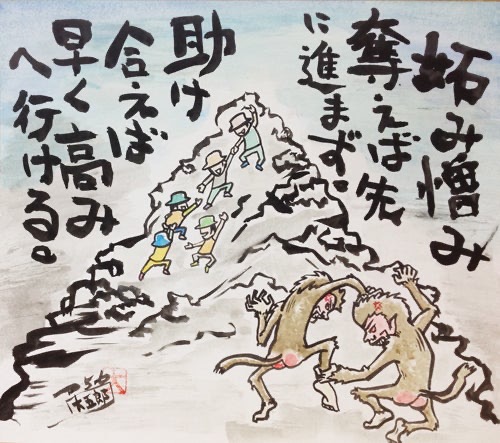 妬み憎み
奪えば先
に進まず。
助け
合えば
早く高み
へ行ける。